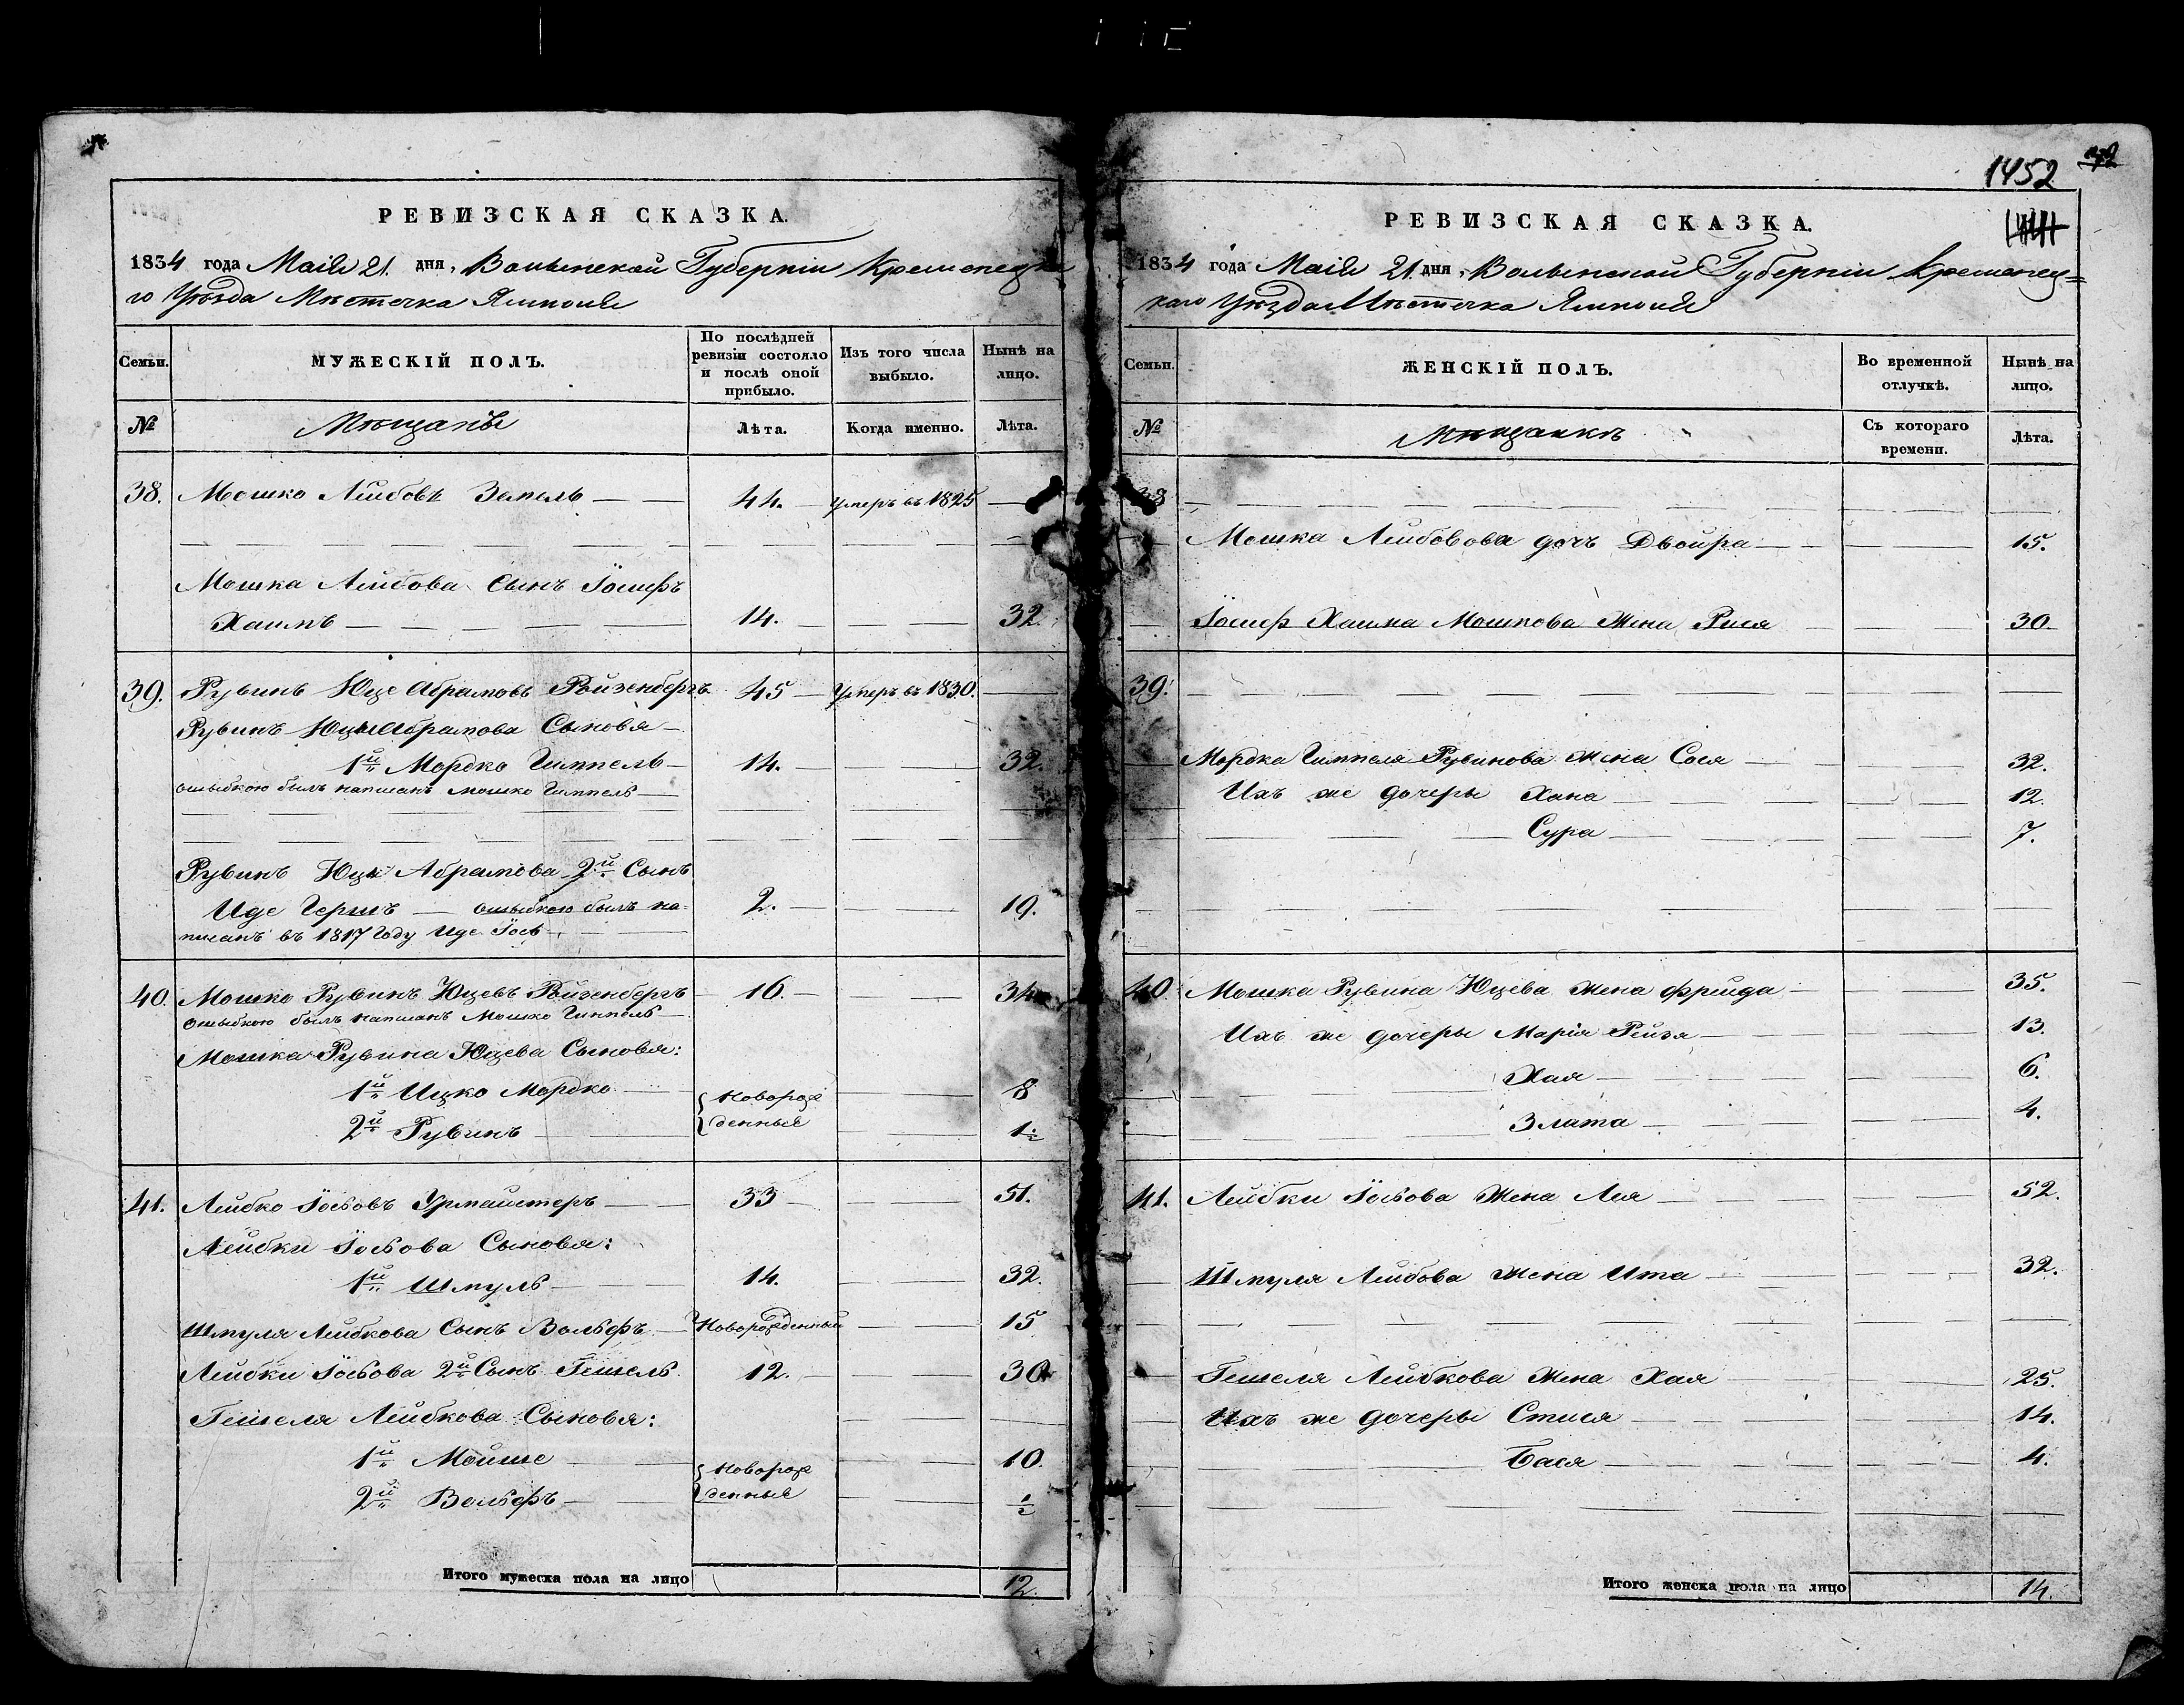 РЕВИЗСКАЯ СКАЗКА.
1834 года Маія 21. дня, Волынской Губерніи Кременецка
го Уѣзда Мѣстечка Ямполя
Семьи. МУЖЕСКІЙ ПОЛЪ. По послѣдней ревизіи состояло и послѣ оной прибыло. Изъ того числа выбыло. Нынѣ на лицо.
№ Мѣщанъ Лѣта. Когда именно. Лѣта.
38. Мошко Лейбовъ Земель 44. Умеръ въ 1825
Мошка Лейбова Сынъ Іосифъ
Хаимъ 14. 32.
39. Рувинъ Юце Абрамовъ Ройзенбергъ 45 Умеръ въ 1830.
Рувинъ Юцы Абрамова Сыновя
1й Мордко Гимпель 14. 32.
ошыбкою былъ написанъ Мошко Гимпель
Рувинъ Юцы Абрамова 2й Сынъ
Иде Гершъ ошыбкою былъ на-
писанъ въ 1817 Году Иде Іось 2. 19.
40. Мошко Рувинъ Юцевъ Ройзенбергъ 16. 34
ошыбкою былъ написанъ Мошко Гимпель
Мошка Рувина Юцева Сыновя:
1й Ицко Мордко Новорож 8
2й Рувинъ денные 1½
41. Лейбко Іосьовъ Урмайстеръ 33 51.
Лейбки Іосьова Сыновя:
1й Шмуль 14. 32.
Шмуля Лейбкова Сынъ Вольфъ Новорожденный 15
Лейбки Іосьова 2й Сынъ Гешель 12. 30
Гешеля Лейбкова Сыновя:
1й Мойше Новорож 10.
2й Вольфъ денные ½
Итого мужеска пола на лицо 12.
1452
РЕВИЗСКАЯ СКАЗКА.
1834 года Маія 21. дня, Волынской Губерніи Кременец=
каго Уѣзда Мѣстечка Ямполя
Семьи. ЖЕНСКІЙ ПОЛЪ. Во временной отлучкѣ. Нынѣ на лицо.
№ Мѣщанкъ Съ котораго времени. Лѣта.
38
Мошка Лейбовова дочъ Двойра 15.
Іосиф Хаима Мошкова Жена Рися 30
39.
Мордка Гимпеля Рувинова Жена Сося 32.
Ихъ же дочеры Хана 12.
Сура 7.
40. Мошка Рувина Юцева Жена Фрейда 35.
Ихъ же дочеры Марія Рейзя 13.
Хая 6.
Злата 4.
41. Лейбки Іосьова Жена Лея 52.
Шмуля Лейбова Жена Ита 32.
Гешеля Лейбкова Жена Хая 25.
Ихъ же дочеры Стися 14.
Бася 4.
Итого женска пола на лицо 14.